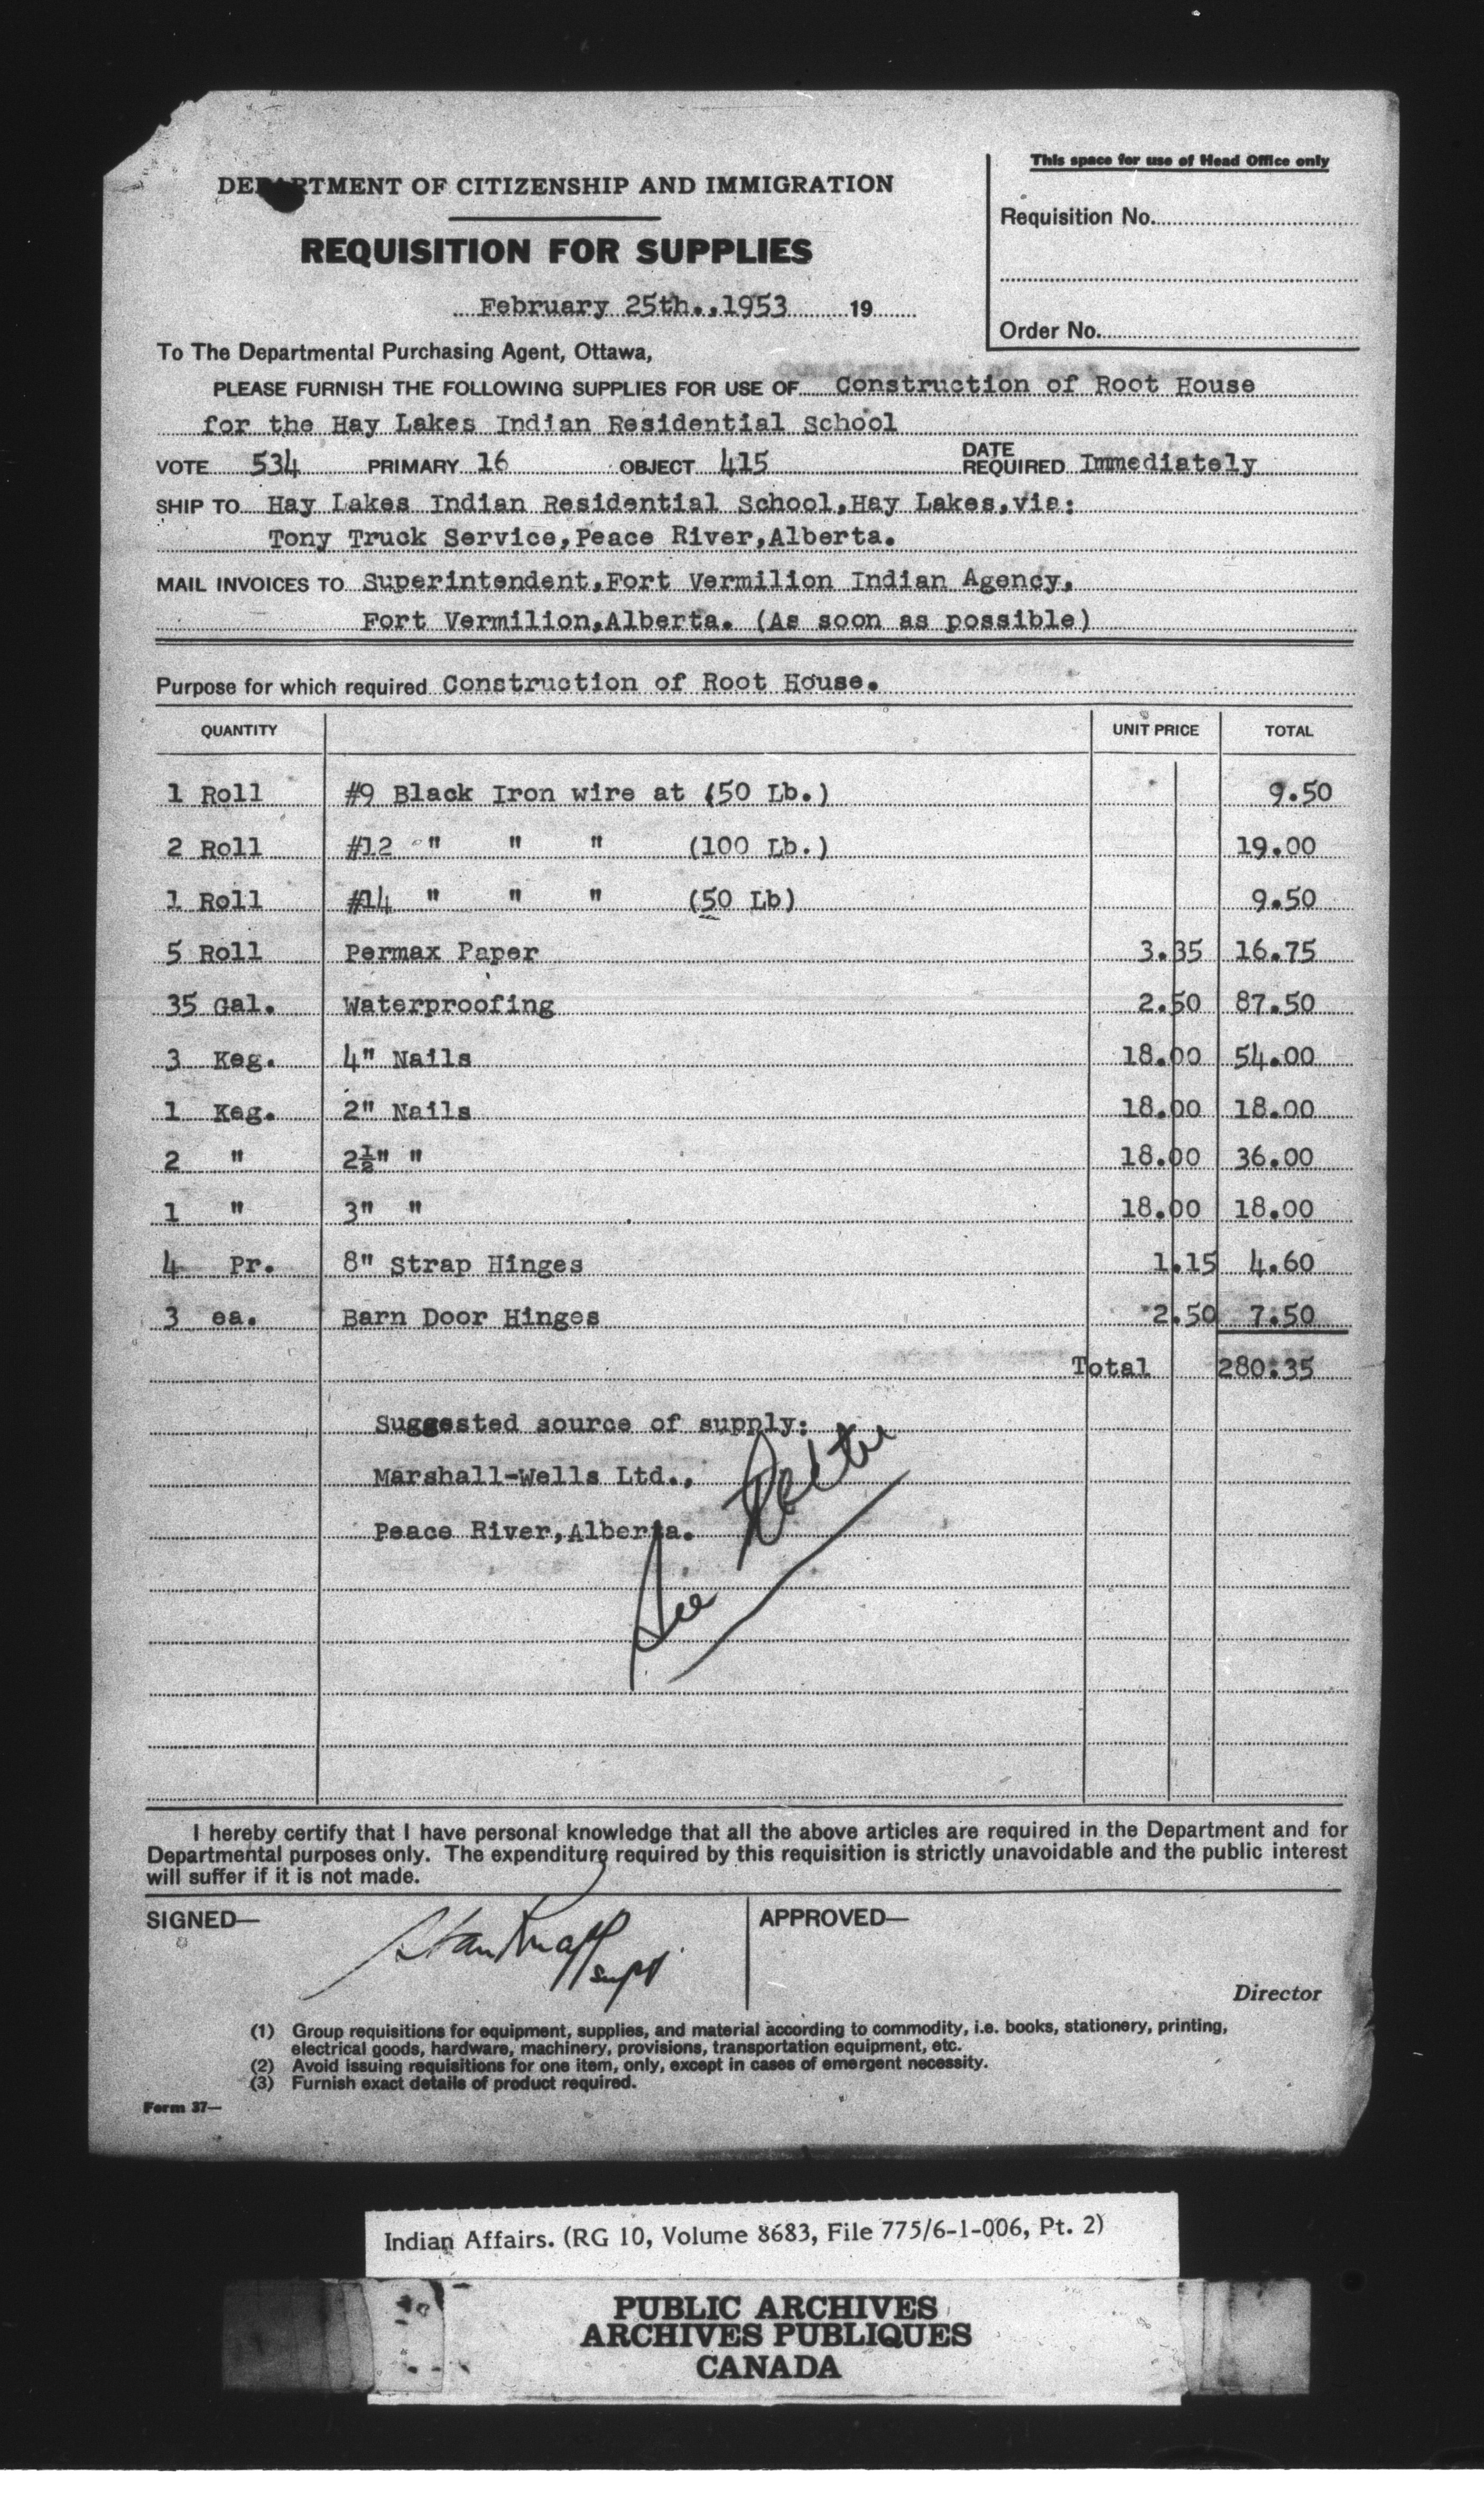 This space for use of Head Office only
DEPARTMENT OF CITIZENSHIP AND IMMIGRATION
REQUISITION FOR SUPPLIES
Requisition No.
February 25th.,1953 19
Order No.
To The Departmental Purchasing Agent, Ottawa,
PLEASE FURNISH THE FOLLOWING SUPPLIES FOR USE OF Construction of Root House
for the Hay Lakes Indian Residential School
VOTE 534 PRIMARY 16 OBJECT 415 DATE REQUIRED Immediately
SHIP TO Hay Lakes Indian Residential School,Hay Lakes,via:
Tony Truck Service,Peace River,Alberta.
MAIL INVOICES TO Superintendent,Fort Vermilion Indian Agency,
Fort Vermilion,Alberta. (As soon as possible)
Purpose for which required Construction of Root House.
QUANTITY UNIT PRICE TOTAL
1 Roll #9 Black Iron wire at (50 Lb.) 9.50
2 Roll #12 " " " (100 Lb.) 19.00
1 Roll #14 " " " (50 Lb) 9.50
5 Roll Permax Paper 3.35 16.75
35 Gal. Waterproofing 2.50 87.50
3 Keg. 4" Nails 18.00 54.00
1 Keg. 2" Nails 18.00 18.00
2 " 2½" " 18.00 36.00
1 " 3" " 18.00 18.00
4 Pr. 8" Strap Hinges 1.15 4.60
3 ea. Barn Door Hinges 2.50 7.50
Total 280.35
Suggested source of supply:
Marshall-Wells Ltd.,
Peace River,Alberta.
See
I hereby certify that I have personal knowledge that all the above articles are required in the Department and for
Departmental purposes only. The expenditure required by this requisition is strictly unavoidable and the public interest
will suffer if it is not made.
SIGNED— APPROVED—
supt
Director
(1) Group requisitions for equipment, supplies, and material according to commodity, i.e. books, stationery, printing,
electrical goods, hardware, machinery, provisions, transportation equipment, etc.
(2) Avoid issuing requisitions for one item, only, except in cases of emergent necessity.
(3) Furnish exact details of product required.
Form 37—
Indian Affairs. (RG 10, Volume 8683, File 775/6-1-006, Pt. 2)
PUBLIC ARCHIVES
ARCHIVES PUBLIQUES
CANADA